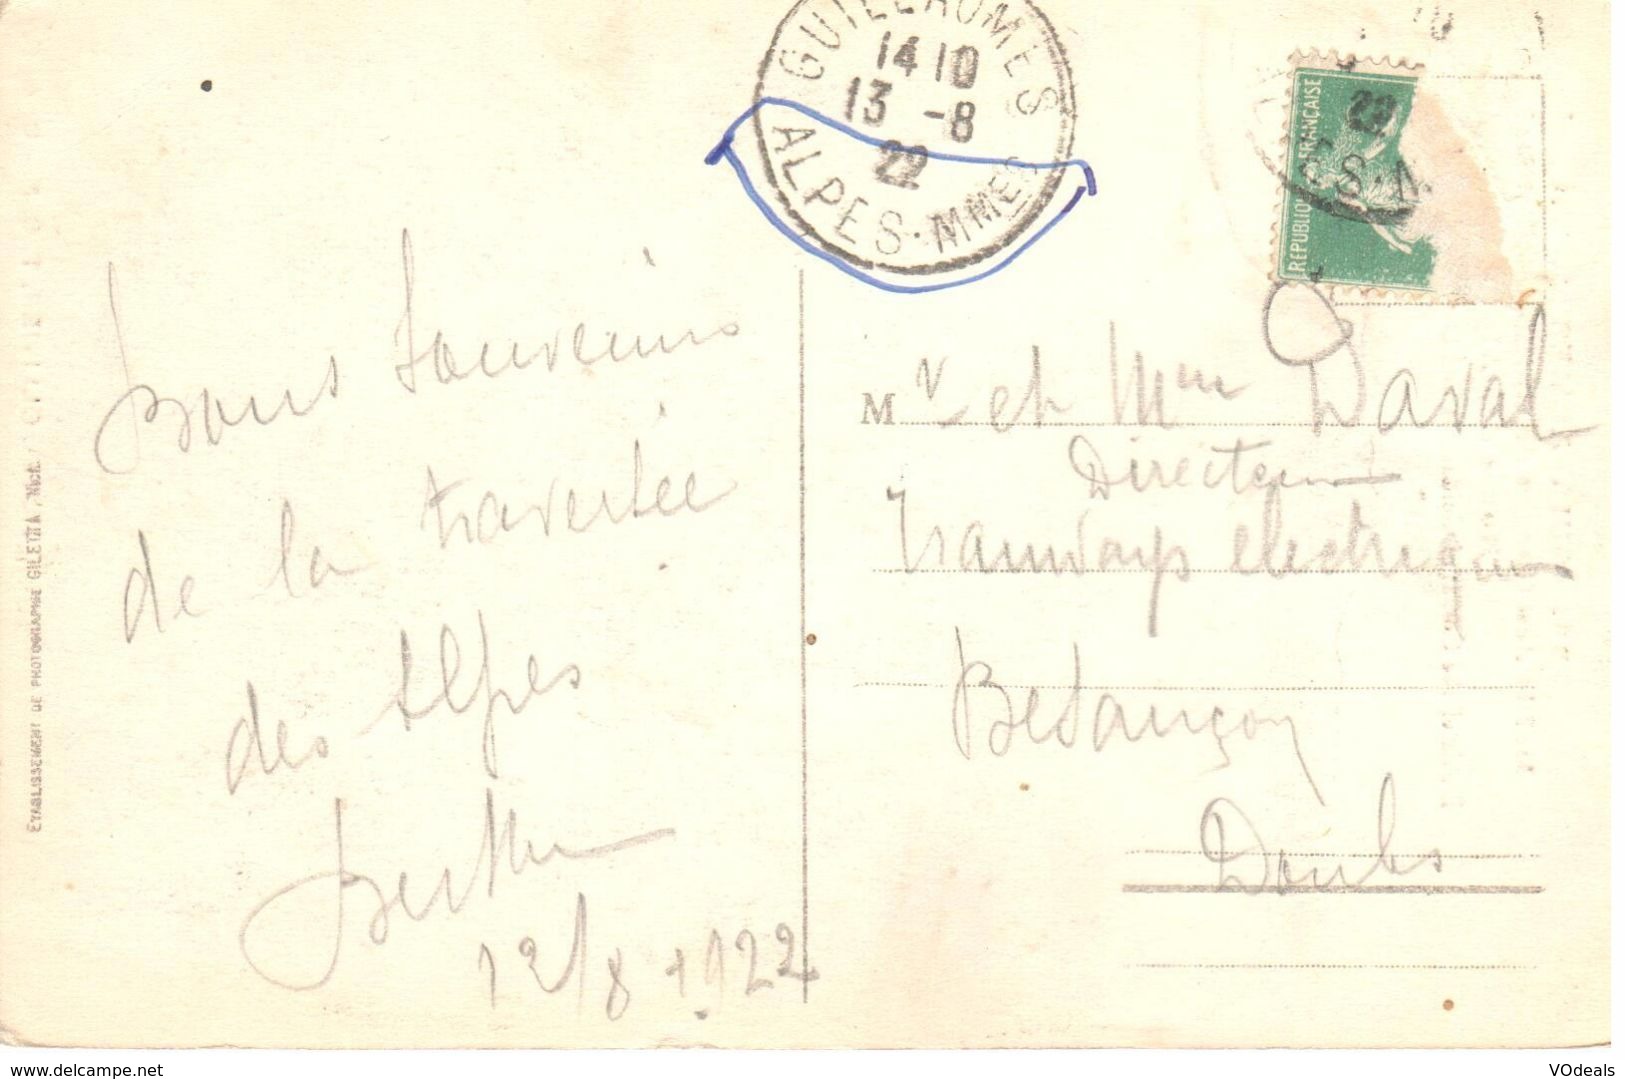 GUILLAUMES
14 10
13 -8
22
ALPES-MMES
REPUBLIQUE FRANÇAISE
22
ES-M
10
Bons souvenirs
de la traversée
des Alpes
12/8 1922
Mr et Mme Daval
Directeur
Tramways électriques
Besançon
Doubs
ETABLISSEMENT DE PHOTOGRAPHIE GILETTA, NICE.
delcampe.net
VOdeals